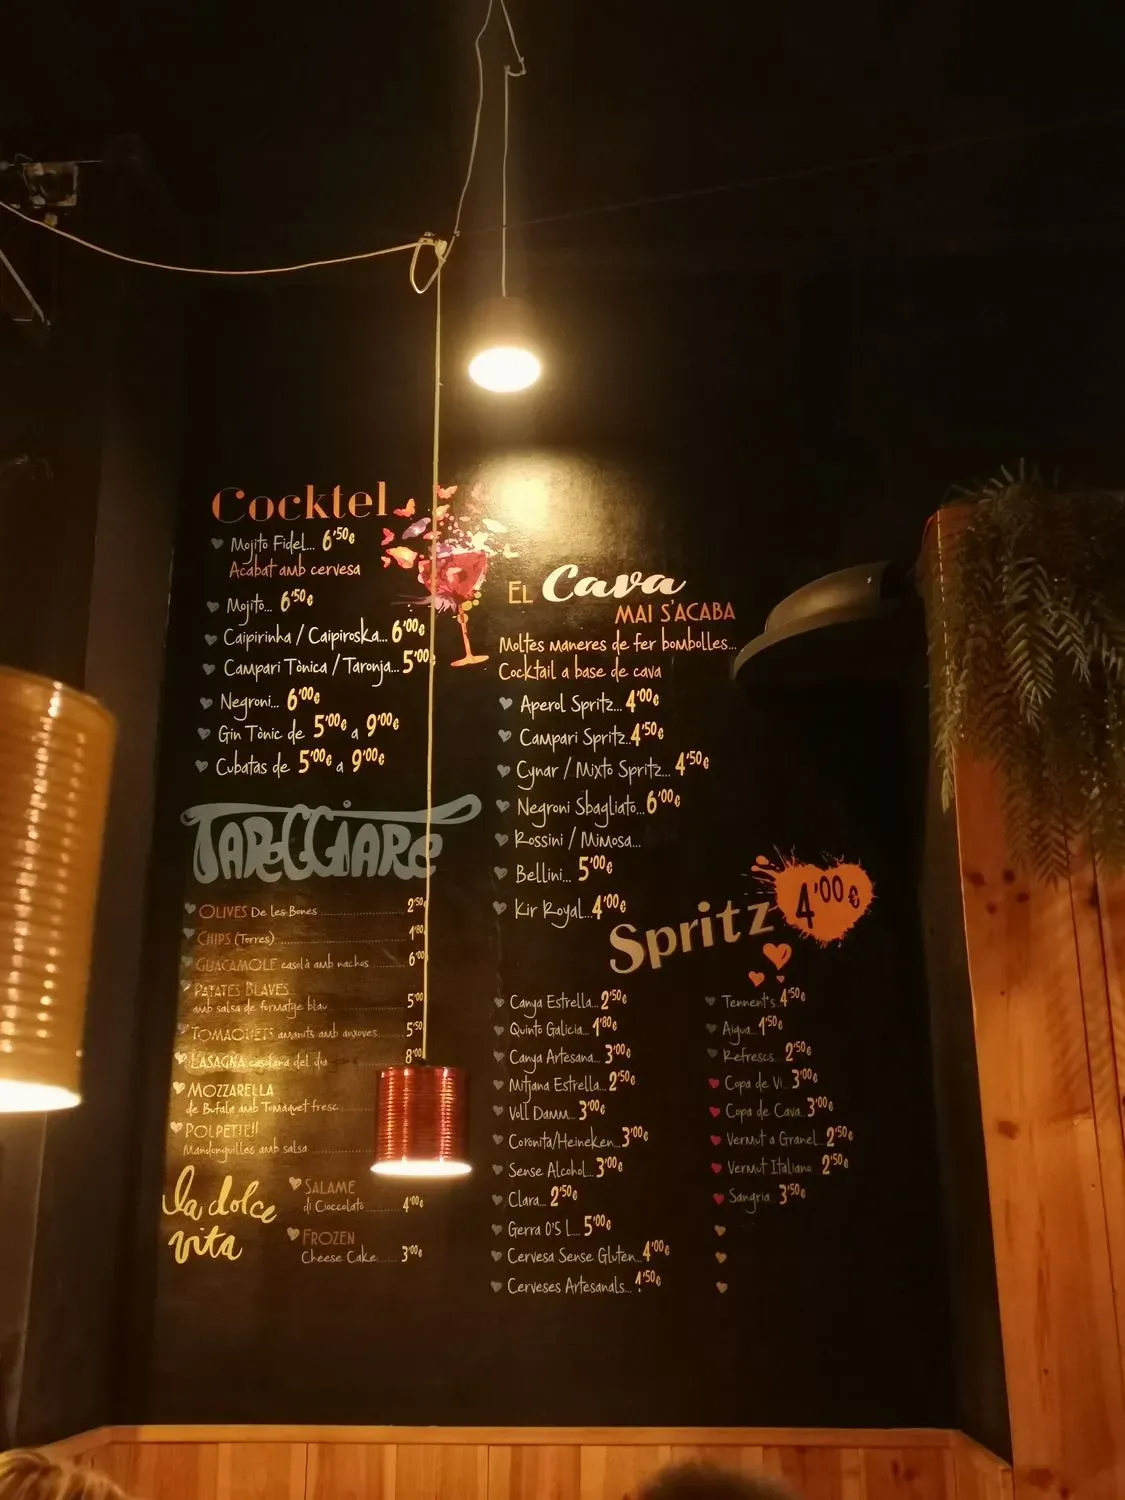 Cocktel
Mojito Fidel... 6'50€
Acabat amb cervesa
Mojito... 6'50€
Caipirinha / Caipiroska... 6'00€
Campari Tònica / Taronja... 5'00
Negroni... 6'00€
Gin Tònic de 5'00€ a 9'00€
Cubatas de 5'00€ a 9'00€
TAPEGGIARE
OLIVES De les Bones 2'50
CHIPS (Torres) 1'80
GUACAMOLE casolà amb nachos 6'00
PATATES BLAVES
amb salsa de formatge blau 5'00
TOMAQUETS amanits amb anxoves 5'50
LASAGNA casolana del dia 8'00
MOZZARELLA
de Bufala amb Tomaquet fresc
POLPETTE!!
Mandonguilles amb salsa
la dolce
vita
SALAME
di Cioccolato 4'00€
FROZEN
Cheese Cake 3'00€
EL Cava
MAI S'ACABA
Moltes maneres de fer bombolles...
Cocktail a base de cava
Aperol Spritz... 4'00€
Campari Spritz.. 4'50€
Cynar / Mixto Spritz... 4'50€
Negroni Sbagliato... 6'00€
Rossini / Mimosa...
Bellini... 5'00€
Kir Royal... 4'00€
Spritz 4'00€
Canya Estrella... 2'50€
Quinto Galicia... 1'80€
Canya Artesana... 3'00€
Mitjana Estrella... 2'50€
Voll Damm... 3'00€
Coronita/Heineken... 3'00€
Sense Alcohol... 3'00€
Clara... 2'50€
Gerra 0'5 L... 5'00€
Cervesa Sense Gluten... 4'00€
Cerveses Artesanals... 4'50€
Tennent's 4'50€
Aigua... 1'50€
Refrescs... 2'50€
Copa de Vi... 3'00€
Copa de Cava... 3'00€
Vermut a Granel... 2'50€
Vermut Italiano 2'50€
Sangria 3'50€